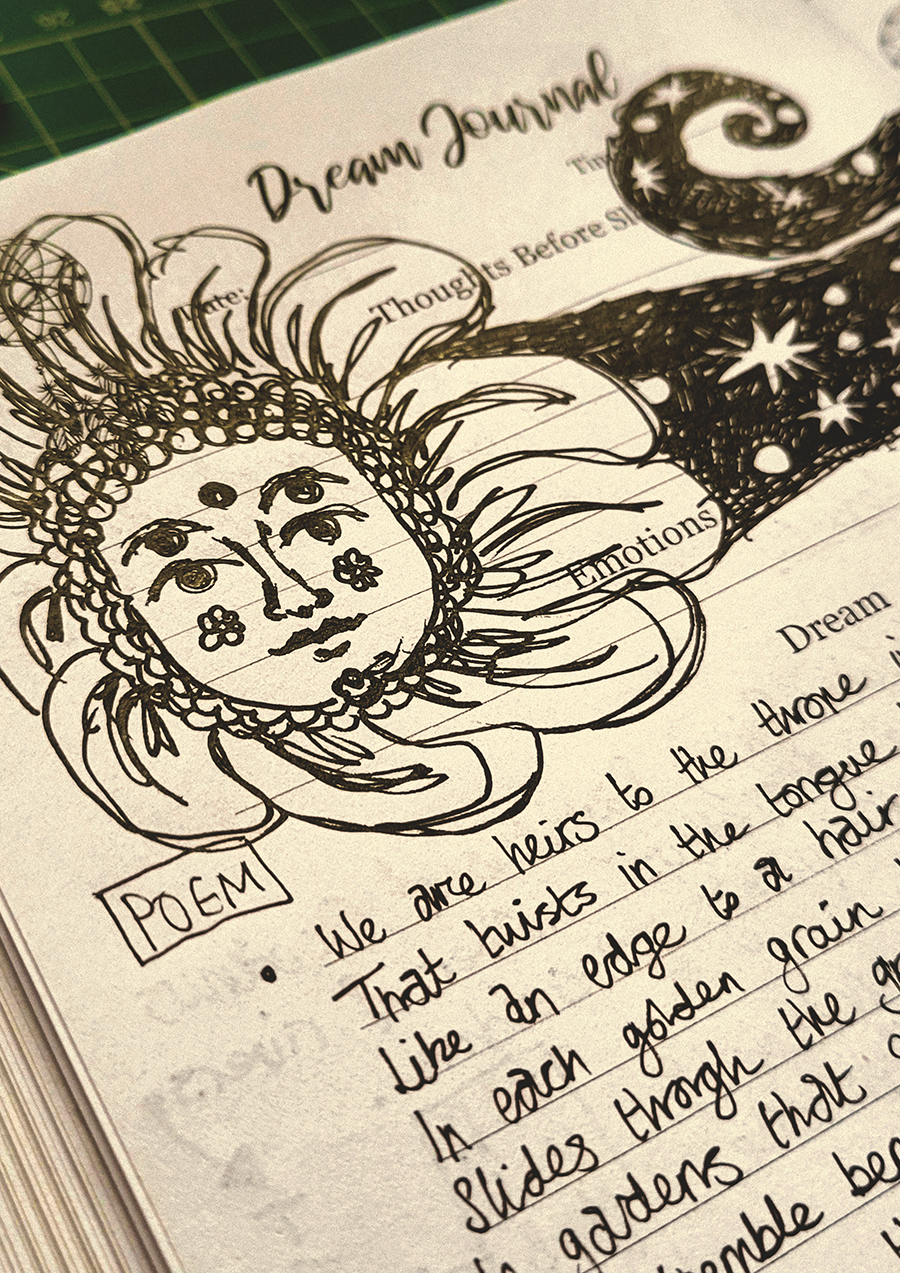 Dream Journal
Date:
Thoughts Before
Emotions
Dream
POEM
We are heirs to the throne
That twists in the tongue
Like an edge to a hair
In each golden grain
Slides through the
gardens that
tremble